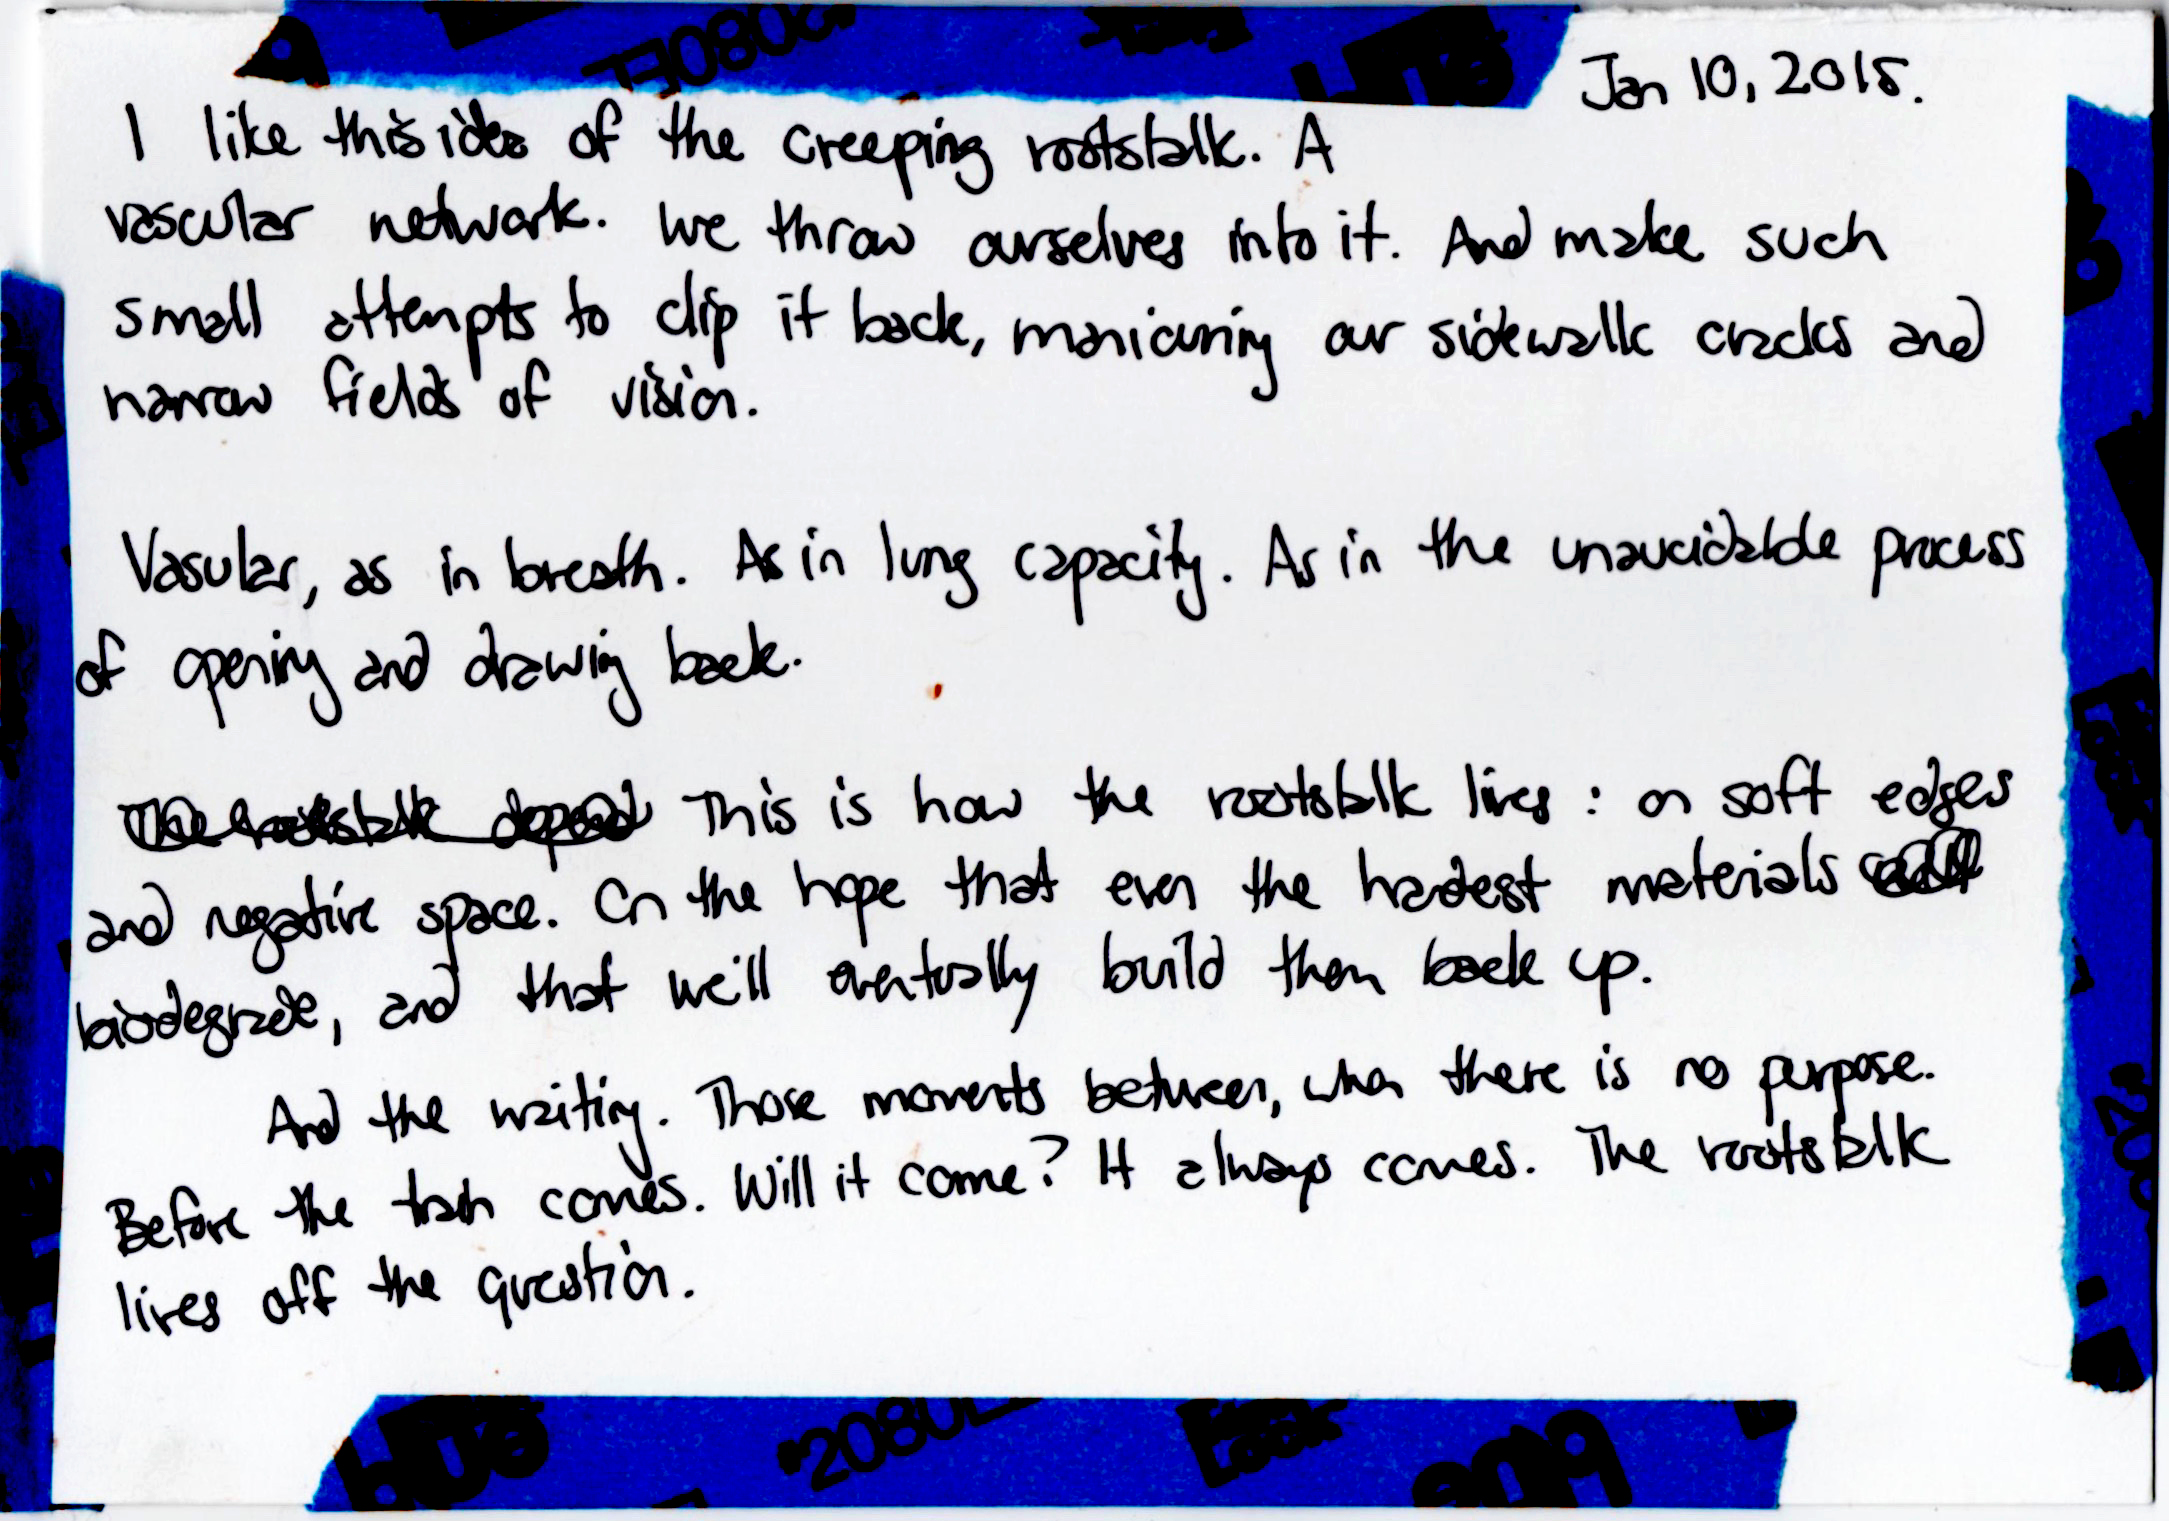 Jan 10, 2015.
I like this idea of the creeping rootstalk. A
vascular network. We throw ourselves into it. And make such
small attempts to clip it back, manicuring our sidewalk cracks and
narrow fields of vision.
Vasular, as in breath. As in lung capacity. As in the unavoidable process
of opening and drawing back.
The rootstalk depend This is how the rootstalk lives: on soft edges
and negative space. On the hope that even the hardest materials
biodegrade, and that we'll eventually build them back up.
And the waiting. Those moments between, when there is no purpose.
Before the train comes. Will it come? It always comes. The rootstalk
lives off the question.
2080L
blue